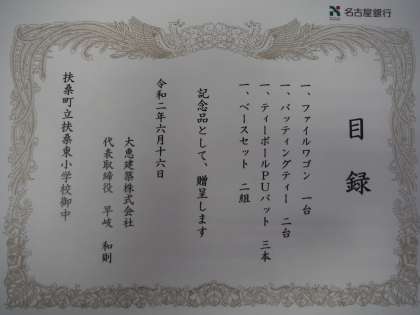 名古屋銀行
目録
一、ファイルワゴン 一台
一、バッティングティー 二台
一、ティーボールPUバット 三本
一、ベースセット 二組
記念品として、贈呈します
令和二年六月十六日
大恵建築株式会社
代表取締役 早岐 和則
扶桑町立扶桑東小学校御中